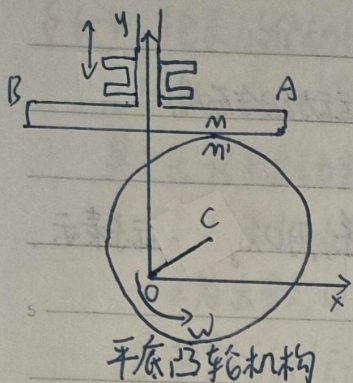 y
B
A
M
M'
C
O
x
W
平底凸轮机构